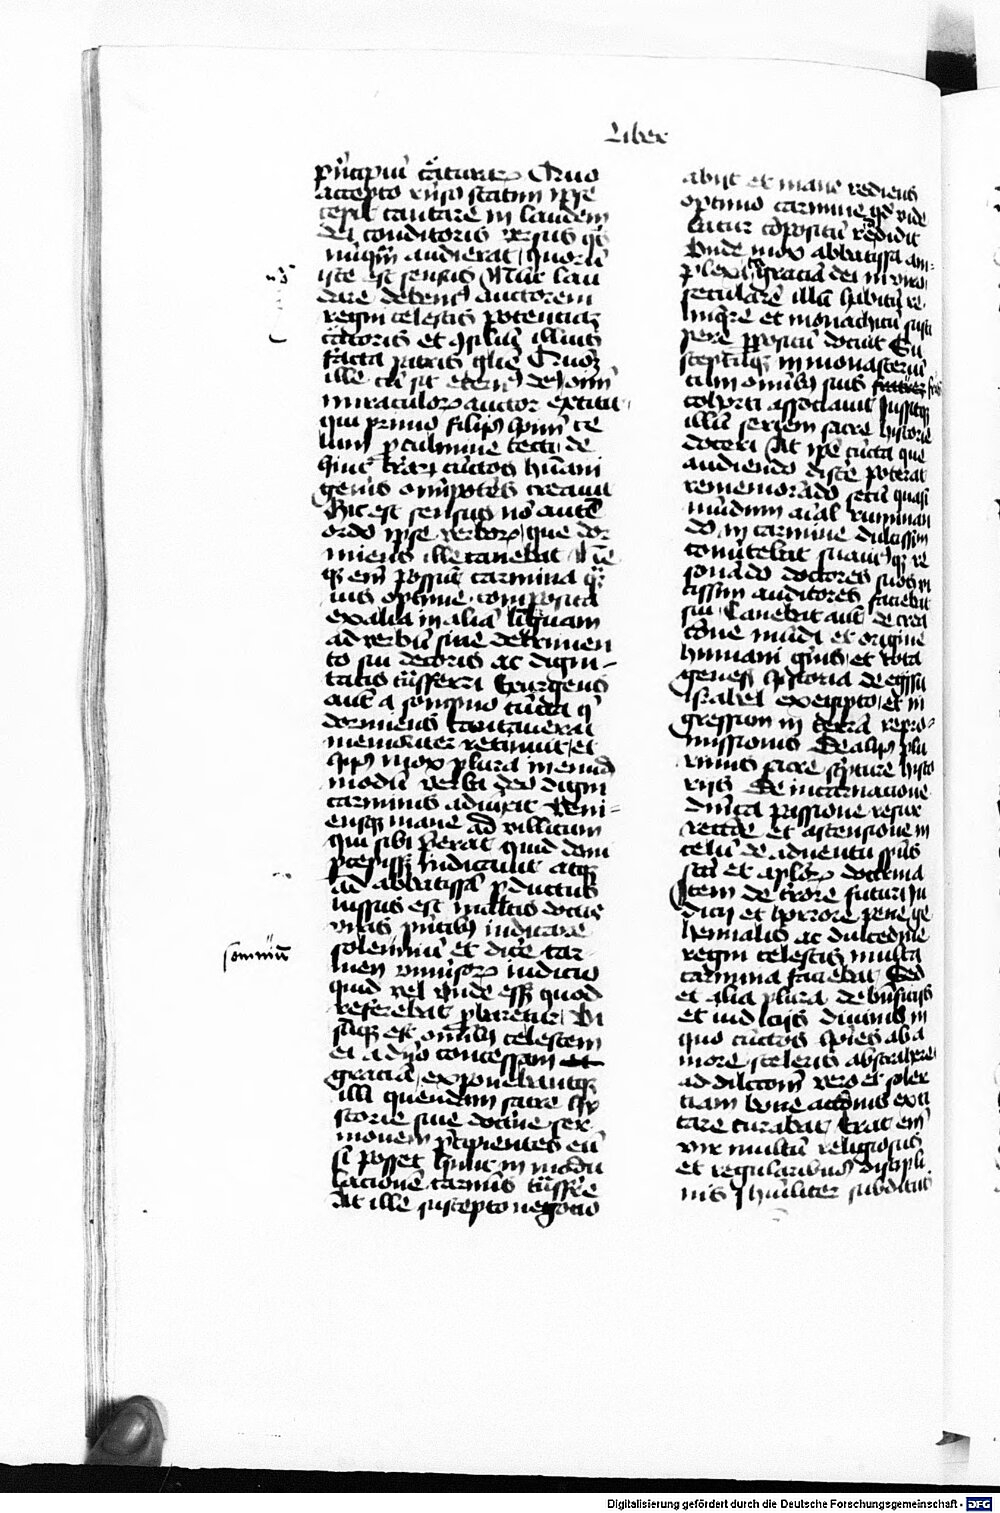 Liber
pͥncipiū cͣaturarꝝ Quo
accepto rñso statim ipse
cepit cantare in laudem
dei conditoris v̓sus qͦs
nūqͣm audierat quorū
iste est sensus Nūc lau
dare debemꝰ auctorem
regni celestis potenciā
cͣatoris et ꝯsiliū illius
facta patris glīe Quōꝫ
ille cū sit etern̄ꝰ deꝰ oīm̄
miraculoꝝ auctor extitit
qui primo filijs hoīm ce
lum ꝓ culmine tecti de
hinc t̓rā custos hūani
gen̓is om̄ipotēs creauit
Hic est sensus nō autē
ordo ip̄e verboꝝ que dor
miens ille canebat Ne
qꝫ em̄ possūt carmina qͣꝫ
uis optime composita
ex alia in aliā linguam
ad verbū sine detrimen
to sui decoris ac digni-
tatis tͣnsferri Exurgens
aūt a sompno cūcta q̄
dormiens cantauerat
memoriter retinuit et
hijs mox plura in eundē
modū verba deo digni
carminis adiūxit Veni=
ensqꝫ mane ad villicum
qui sibi p̄erat quid doni
ꝑcepissꝫ indicauit atqꝫ
ad abbatissā ꝑductus
iussus est multis doctis
viris p̄ntibꝫ indicare
solemniū
somniū
et dicͤe car-
men vt vniu̓soꝝ iudicio
quid vel vnde essꝫ quod
referebat ꝓbaretur Vi
sūqꝫ est om̄ibꝫ celestem
ei a dn̄o concessam et
graciā exponebantqꝫ
illi quendam sacre hy
storie siue doct͛ne ser
monem p̄cipientes eū
si posset hunc in modu
lacionē carmīs tͣnsferre
At ille suscepto negocio
abijt et mane rediens
optimo carmine qd̓ iube
batur cōpositū reddidit
Vnde mox abbatissa am=
plexās graciā dei in viro
secularē illū habitū re
linqͤre et monachicū susci
pere ꝓpositū docuit Su
sceptūqꝫ in monasteriū
cum omībꝫ suis fratrū frm̄
cohorti associauit iussitqꝫ
illū seriem sacre historie
doceri At ip̄e cūcta que
audiendo discͤe poterat
rememorādo secū quasi
mūdum aīal ruminan
do in carmine dulcissim̄
conu̓tebat suauiꝰqꝫ re
sonādo doctores suos vi
cissim auditores faciebat
sui Canebat aūt de crea
cōne mūdi et origine
humani gn̓is et tota
genesꝭ historia de egressu
israhel ex egypto et in
gressum in terrā repro-
missionis De alijs plu
rimis sacre sc̓pture histo
rijs De incarnacione
dn̄ica passione resur
rectōe et ascensione in
celū de aduentu sp̄us
sc̄ti et apl̓oꝝ doctrina
Item de t̓rore futuri iu
dicij et horrore pene ge
hennalis ac dulcedine
regni celestis multa
carmina faciebat Sed
et alia plura de bn̄ficijs
et iudicijs diuinis in
quo cūctos hoīes ab a
more scelerū abstrahere
ad dilcc̄onē vero et soler
ciam bone accōnis exci
tare curabat Erat em̄
vir multū religiosus
et regularibus discipli
nis hūiliter subditus